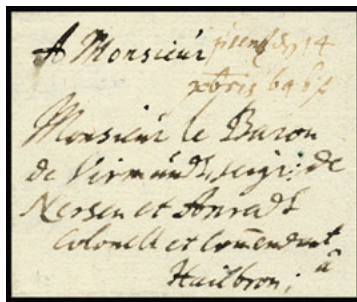 A Monsieur
Monsieur le Baron
de Virmundt, seigr: de
Nersen et Anradt
Colonell et Com̄endant
â
Hailbron;